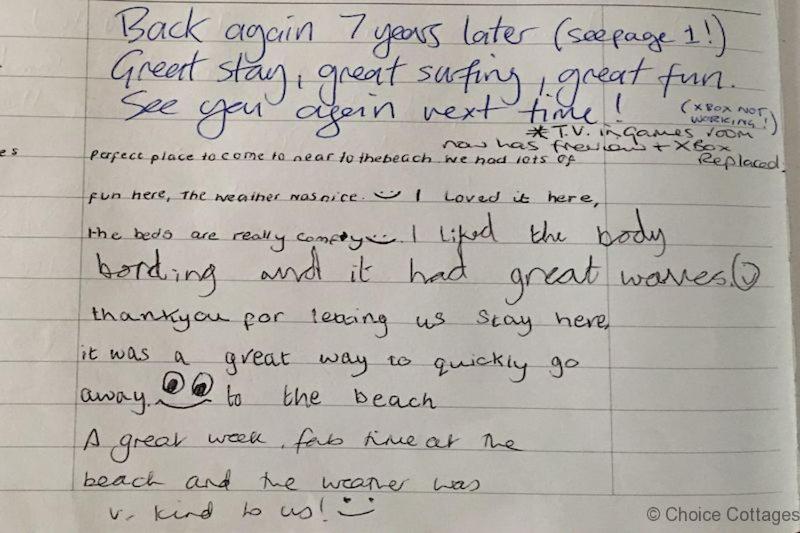 Back again 7 years later (see page 1!)
Great stay, great surfing, great fun.
See you again next time!
(XBOX NOT
WORKING!)
* T.V. in games room
now has freeview + XBox
Replaced.
es
perfect place to come to near to the beach we had lots of
fun here, The weather was nice. I loved it here,
the beds are really comfy. I liked the body
bording and it had great waves.
thankyou for letting us stay here,
it was a great way to quickly go
away. to the beach
A great week, fab time at the
beach and the weather was
v. kind to us!
© Choice Cottages